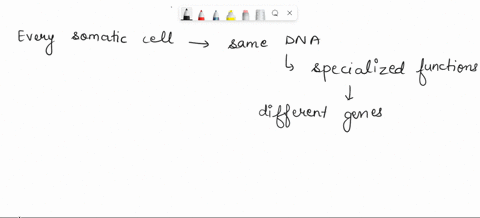 Every somatic cell → same DNA
↳ specialized functions
↓
different genes